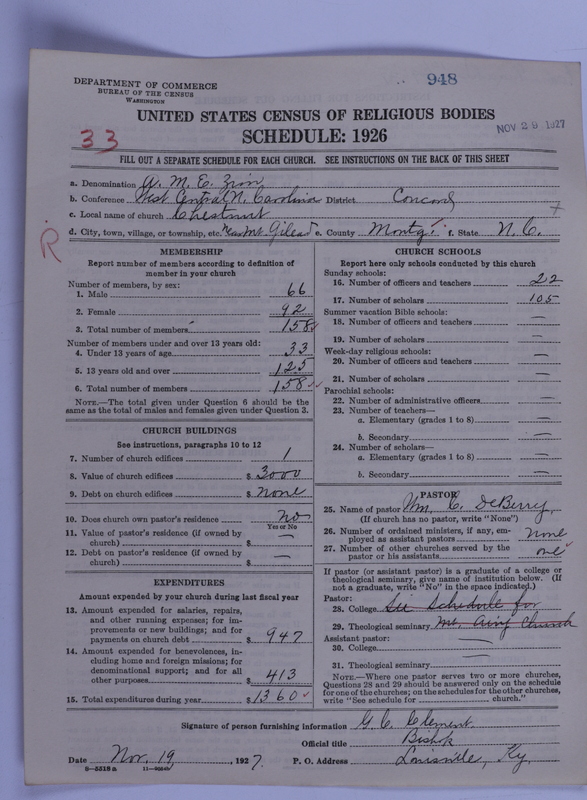 948
DEPARTMENT OF COMMERCE
BUREAU OF THE CENSUS
WASHINGTON
UNITED STATES CENSUS OF RELIGIOUS BODIES
NOV 29 1927
33
SCHEDULE: 1926
FILL OUT A SEPARATE SCHEDULE FOR EACH CHURCH. SEE INSTRUCTIONS ON THE BACK OF THIS SHEET
a. Denomination A. M. E. Zion
b. Conference West Central N. Carolina District Concord
c. Local name of church Chestnut
d. City, town, village, or township, etc. Near Mt. Gilead e. County Montg. f. State N. C.
R
MEMBERSHIP
Report number of members according to definition of
member in your church
Number of members, by sex:
1. Male 66
2. Female 92
3. Total number of members 158
Number of members under and over 13 years old:
4. Under 13 years of age 33
5. 13 years old and over 125
6. Total number of members 158
NOTE.—The total given under Question 6 should be the
same as the total of males and females given under Question 3.
CHURCH BUILDINGS
See instructions, paragraphs 10 to 12
7. Number of church edifices 1
8. Value of church edifices $ 3000
9. Debt on church edifices $ none
10. Does church own pastor's residence no
Yes or No
11. Value of pastor's residence (if owned by
church) $ —
12. Debt on pastor's residence (if owned by
church) $ —
EXPENDITURES
Amount expended by your church during last fiscal year
13. Amount expended for salaries, repairs,
and other running expenses; for im-
provements or new buildings; and for
payments on church debt $ 947
14. Amount expended for benevolences, in-
cluding home and foreign missions; for
denominational support; and for all
other purposes $ 413
15. Total expenditures during year $ 1360
CHURCH SCHOOLS
Report here only schools conducted by this church
Sunday schools:
16. Number of officers and teachers 22
17. Number of scholars 105
Summer vacation Bible schools:
18. Number of officers and teachers —
19. Number of scholars —
Week-day religious schools:
20. Number of officers and teachers —
21. Number of scholars —
Parochial schools:
22. Number of administrative officers —
23. Number of teachers—
a. Elementary (grades 1 to 8) —
b. Secondary —
24. Number of scholars—
a. Elementary (grades 1 to 8) —
b. Secondary —
PASTOR
25. Name of pastor Wm. C. DeBerry
(If church has no pastor, write "None")
26. Number of ordained ministers, if any, em-
ployed as assistant pastors none
27. Number of other churches served by the
pastor or his assistants one
If pastor (or assistant pastor) is a graduate of a college or
theological seminary, give name of institution below. (If
not a graduate, write "No" in the space indicated.)
Pastor:
28. College See Schedule for
29. Theological seminary Mt. Airy Church
Assistant pastor:
30. College —
31. Theological seminary —
NOTE.—Where one pastor serves two or more churches,
Questions 28 and 29 should be answered only on the schedule
for one of the churches; on the schedules for the other churches,
write "See schedule for church."
Signature of person furnishing information G. C. Clement
Official title Bishop
Date Nov. 19, 1927. P. O. Address Louisville, Ky.
8—5518 a